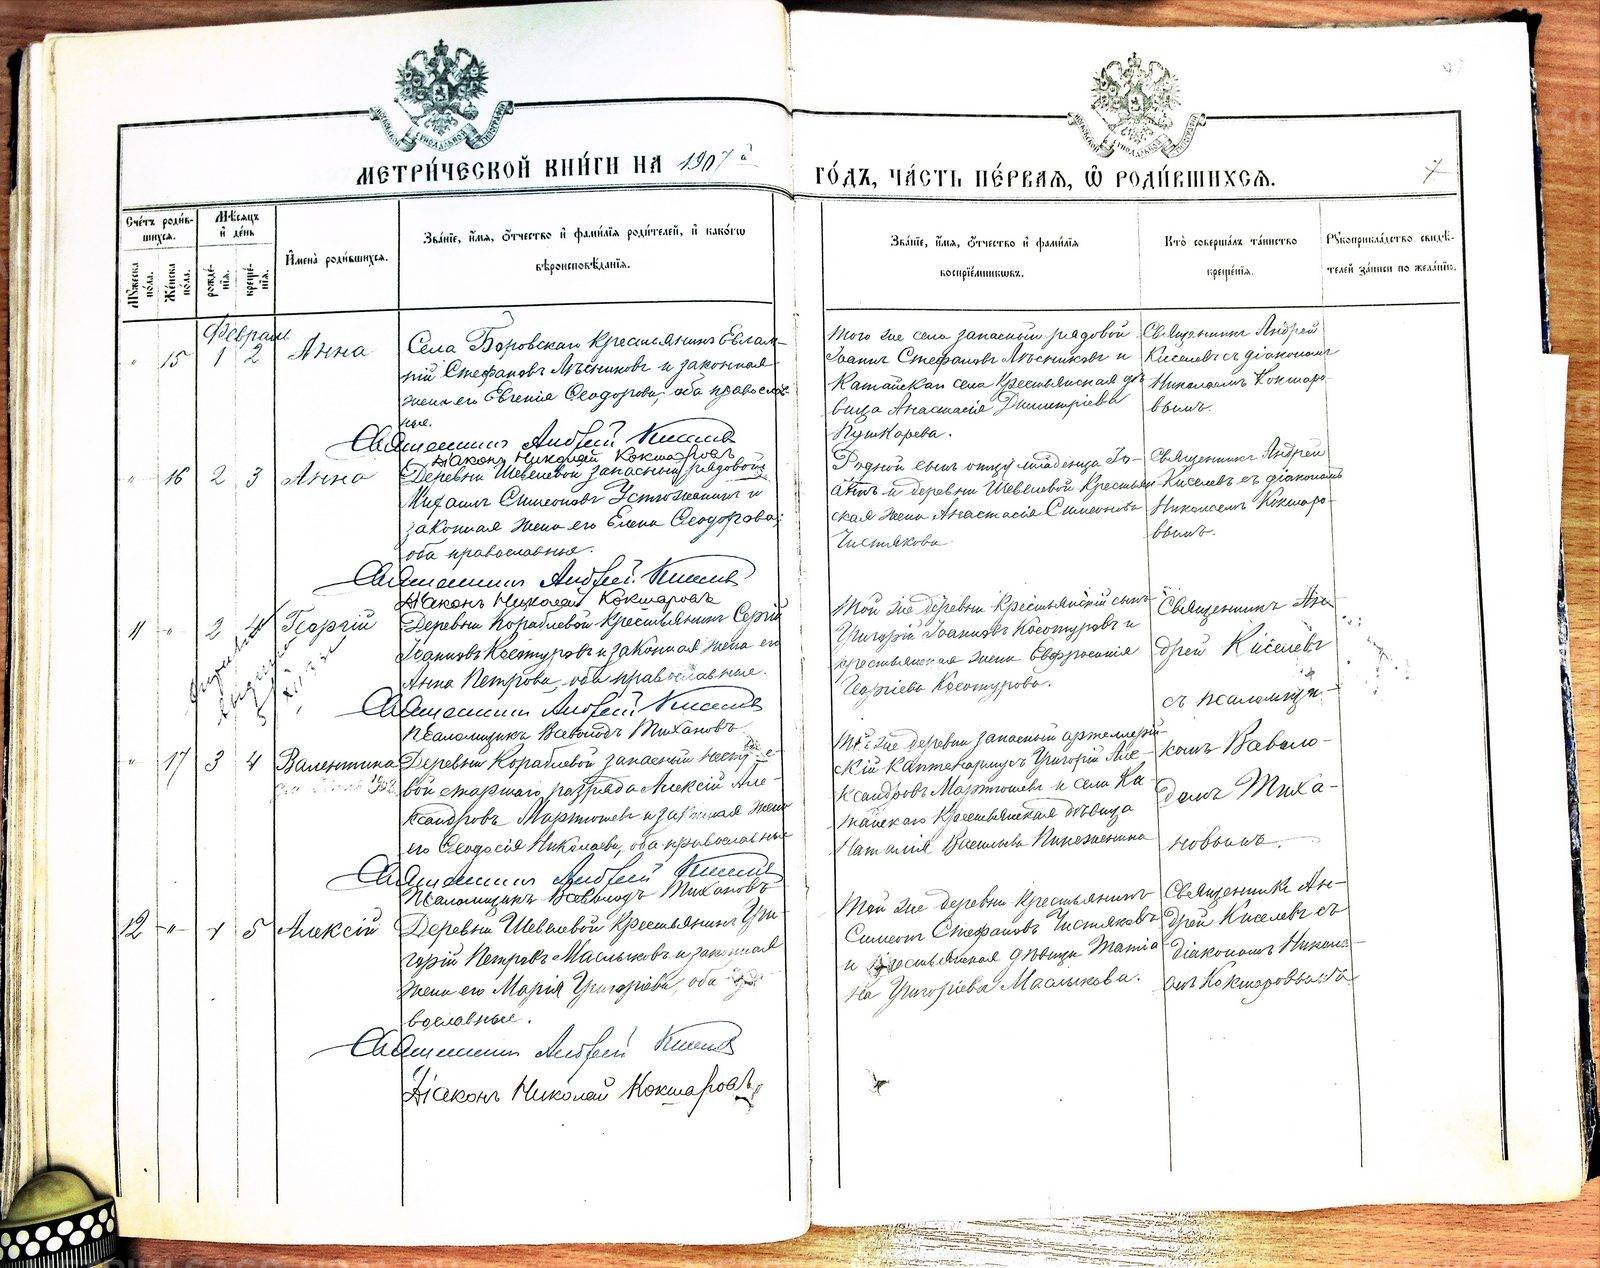 МЕТРИ́ЧЕСКОЙ КНИ́ГИ НА 1907й
ГО́ДЪ, ЧА́СТЬ ПЕ́РВАЯ, Ѡ РОДИ́ВШИХСЯ.
7
Сче́тъ роди́в-
шихся.
Мѣ́сяцъ
и҆ де́нь
И҆мена̀ роди́вшихся.
Зва́нїе, и҆́мя, ѻ҆́тчество и҆ фами́лїя роди́телей, и҆ како́гѡ
вѣроисповѣ́данїя.
Зва́нїе, и҆́мя, ѻ҆́тчество и҆ фами́лїя
воспрїе́мникѡвъ.
Кто̀ соверша́лъ та́инство
креще́нїя.
Рꙋкоприкла́дство свидѣ́-
телей за́писи по жела́нїю.
Мꙋ́жеска
по́ла.
Же́нска
по́ла.
рожде́-
нїя.
креще́-
нїя.
Февраля
" 15 1 2 Анна
Села Боровскаго крестьянинъ Евлам-
пій Стефановъ Лѣсниковъ и законная
жена его Евгенія Ѳеодорова, оба православ-
ные.
Священникъ Андрей Киселевъ
Діаконъ Николай Кокшаровъ
Того же села запасный рядовой
Іоаннъ Стефановъ Лѣсниковъ и
Катайскаго села крестьянская дѣ-
вица Анастасія Димитріева
Пушкарева.
Священникъ Андрей
Киселевъ съ діакономъ
Николаемъ Кокшаро-
вымъ.
" 16 2 3 Анна
Деревни Шевелевой запасный рядовой
Михаилъ Симеоновъ Устюжанинъ и
законная жена его Елена Ѳеодорова,
оба православные.
Священникъ Андрей Киселевъ
Діаконъ Николай Кокшаровъ
Родной сынъ отцу младенца Іо-
аннъ и деревни Шевелевой крестьян-
ская жена Анастасія Симеонова
Чистякова.
Священникъ Андрей
Киселевъ съ діакономъ
Николаемъ Кокшаро-
вымъ.
11 " 2 4 Георгій
Деревни Кораблевой крестьянинъ Сергій
Іоанновъ Косотуровъ и законная жена его
Анна Петрова, оба православные.
Священникъ Андрей Киселевъ
Псаломщикъ Вавилодъ Тихановъ
Той же деревни крестьянскій сынъ
Григорій Іоанновъ Косотуровъ и
крестьянская жена Евфросинія
Георгіева Косотурова.
Священникъ Ан-
дрей Киселевъ
съ псаломщи-
комъ Вавило-
домъ Тиха-
новымъ.
" 17 3 4 Валентина
Деревни Кораблевой запасный
вой старшаго разряда Алексій Але-
ксандровъ Мартюшевъ и законная жена
его Ѳеодосія Николаева, оба православные
Священникъ Андрей Киселевъ
Псаломщикъ Вавилодъ Тихановъ
Той же деревни запасный артиллерій-
скій каптенармусъ Григорій Але-
ксандровъ Мартюшевъ и села Ка-
тайскаго крестьянская дѣвица
Наталія Васильева
12 " 4 5 Алексій
Деревни Шевелевой крестьянинъ Гри-
горій Петровъ Маслыковъ и законная
жена его Марія Григоріева, оба пра-
вославные.
Священникъ Андрей Киселевъ
Діаконъ Николай Кокшаровъ
Той же деревни крестьянинъ
Симеонъ Стефановъ Чистяковъ
и крестьянская дѣвица Татіа-
на Григоріева Маслыкова.
Священникъ Ан-
дрей Киселевъ съ
діакономъ Никола-
емъ Кокшаровымъ